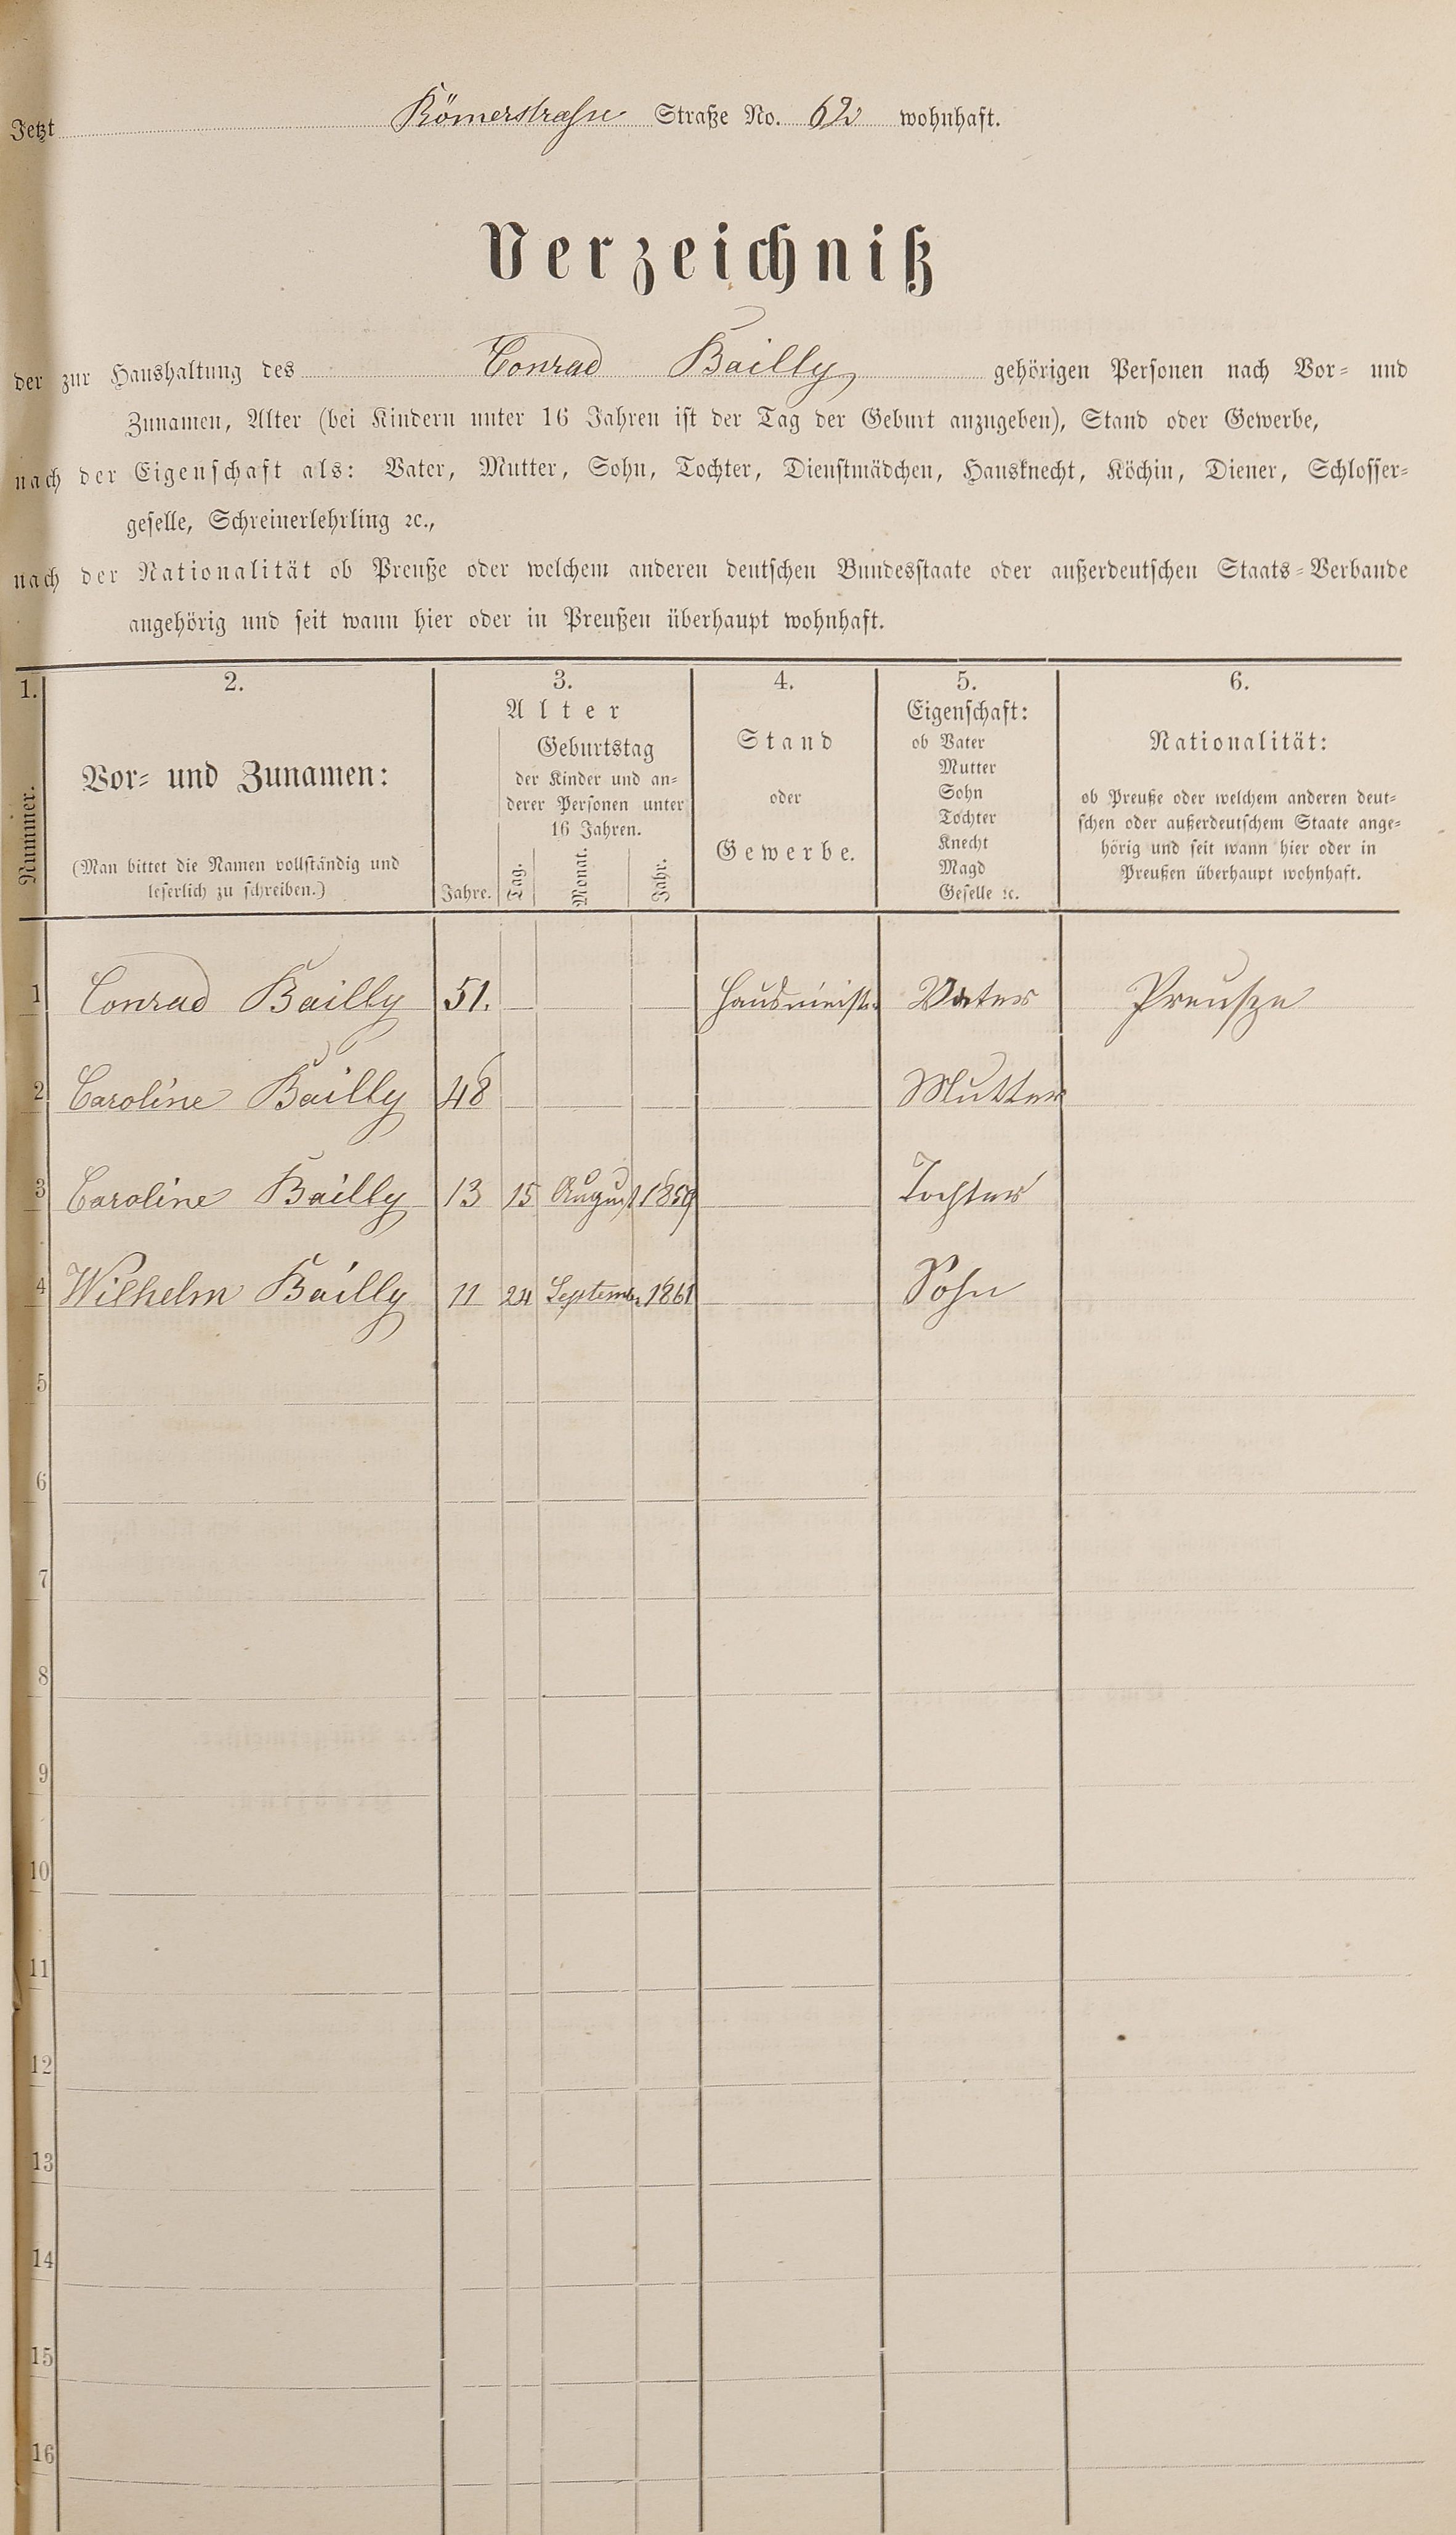 Jetzt Römerstraße Straße No. 62 wohnhaft.
Verzeichniß
der zur Haushaltung des Conrad Bailly gehörigen Personen nach Vor- und
Zunamen, Alter (bei Kindern unter 16 Jahren ist der Tag der Geburt anzugeben), Stand oder Gewerbe,
nach der Eigenschaft als: Vater, Mutter, Sohn, Tochter, Dienstmädchen, Hausknecht, Köchin, Diener, Schlosser-
geselle, Schreinerlehrling ꝛc.,
nach der Nationalität ob Preuße oder welchem anderen deutschen Bundesstaate oder außerdeutschen Staats-Verbande
angehörig und seit wann hier oder in Preußen überhaupt wohnhaft.
1.
Nummer.
2.
Vor- und Zunamen:
(Man bittet die Namen vollständig und
leserlich zu schreiben.)
3.
Alter
Jahre.
Geburtstag
der Kinder und an-
derer Personen unter
16 Jahren.
Tag.
Monat.
Jahr.
4.
Stand
oder
Gewerbe.
5.
Eigenschaft:
ob Vater
Mutter
Sohn
Tochter
Knecht
Magd
Geselle ꝛc.
6.
Nationalität:
ob Preuße oder welchem anderen deut-
schen oder außerdeutschem Staate ange-
hörig und seit wann hier oder in
Preußen überhaupt wohnhaft.
1 Conrad Bailly 51. Hausmeister Vater Preusze
2 Caroline Bailly 48 Mutter
3 Caroline Bailly 13 15 August 1859 Tochter
4 Wilhelm Bailly 11 24 September 1861 Sohn
5
6
7
8
9
10
11
12
13
14
15
16